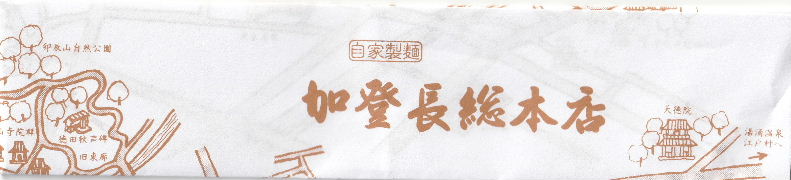 卯辰山自然公園
自家製麺
加登長総本店
天徳院
徳田秋声碑
湯涌温泉
江戸村へ
山寺院群
旧東廓